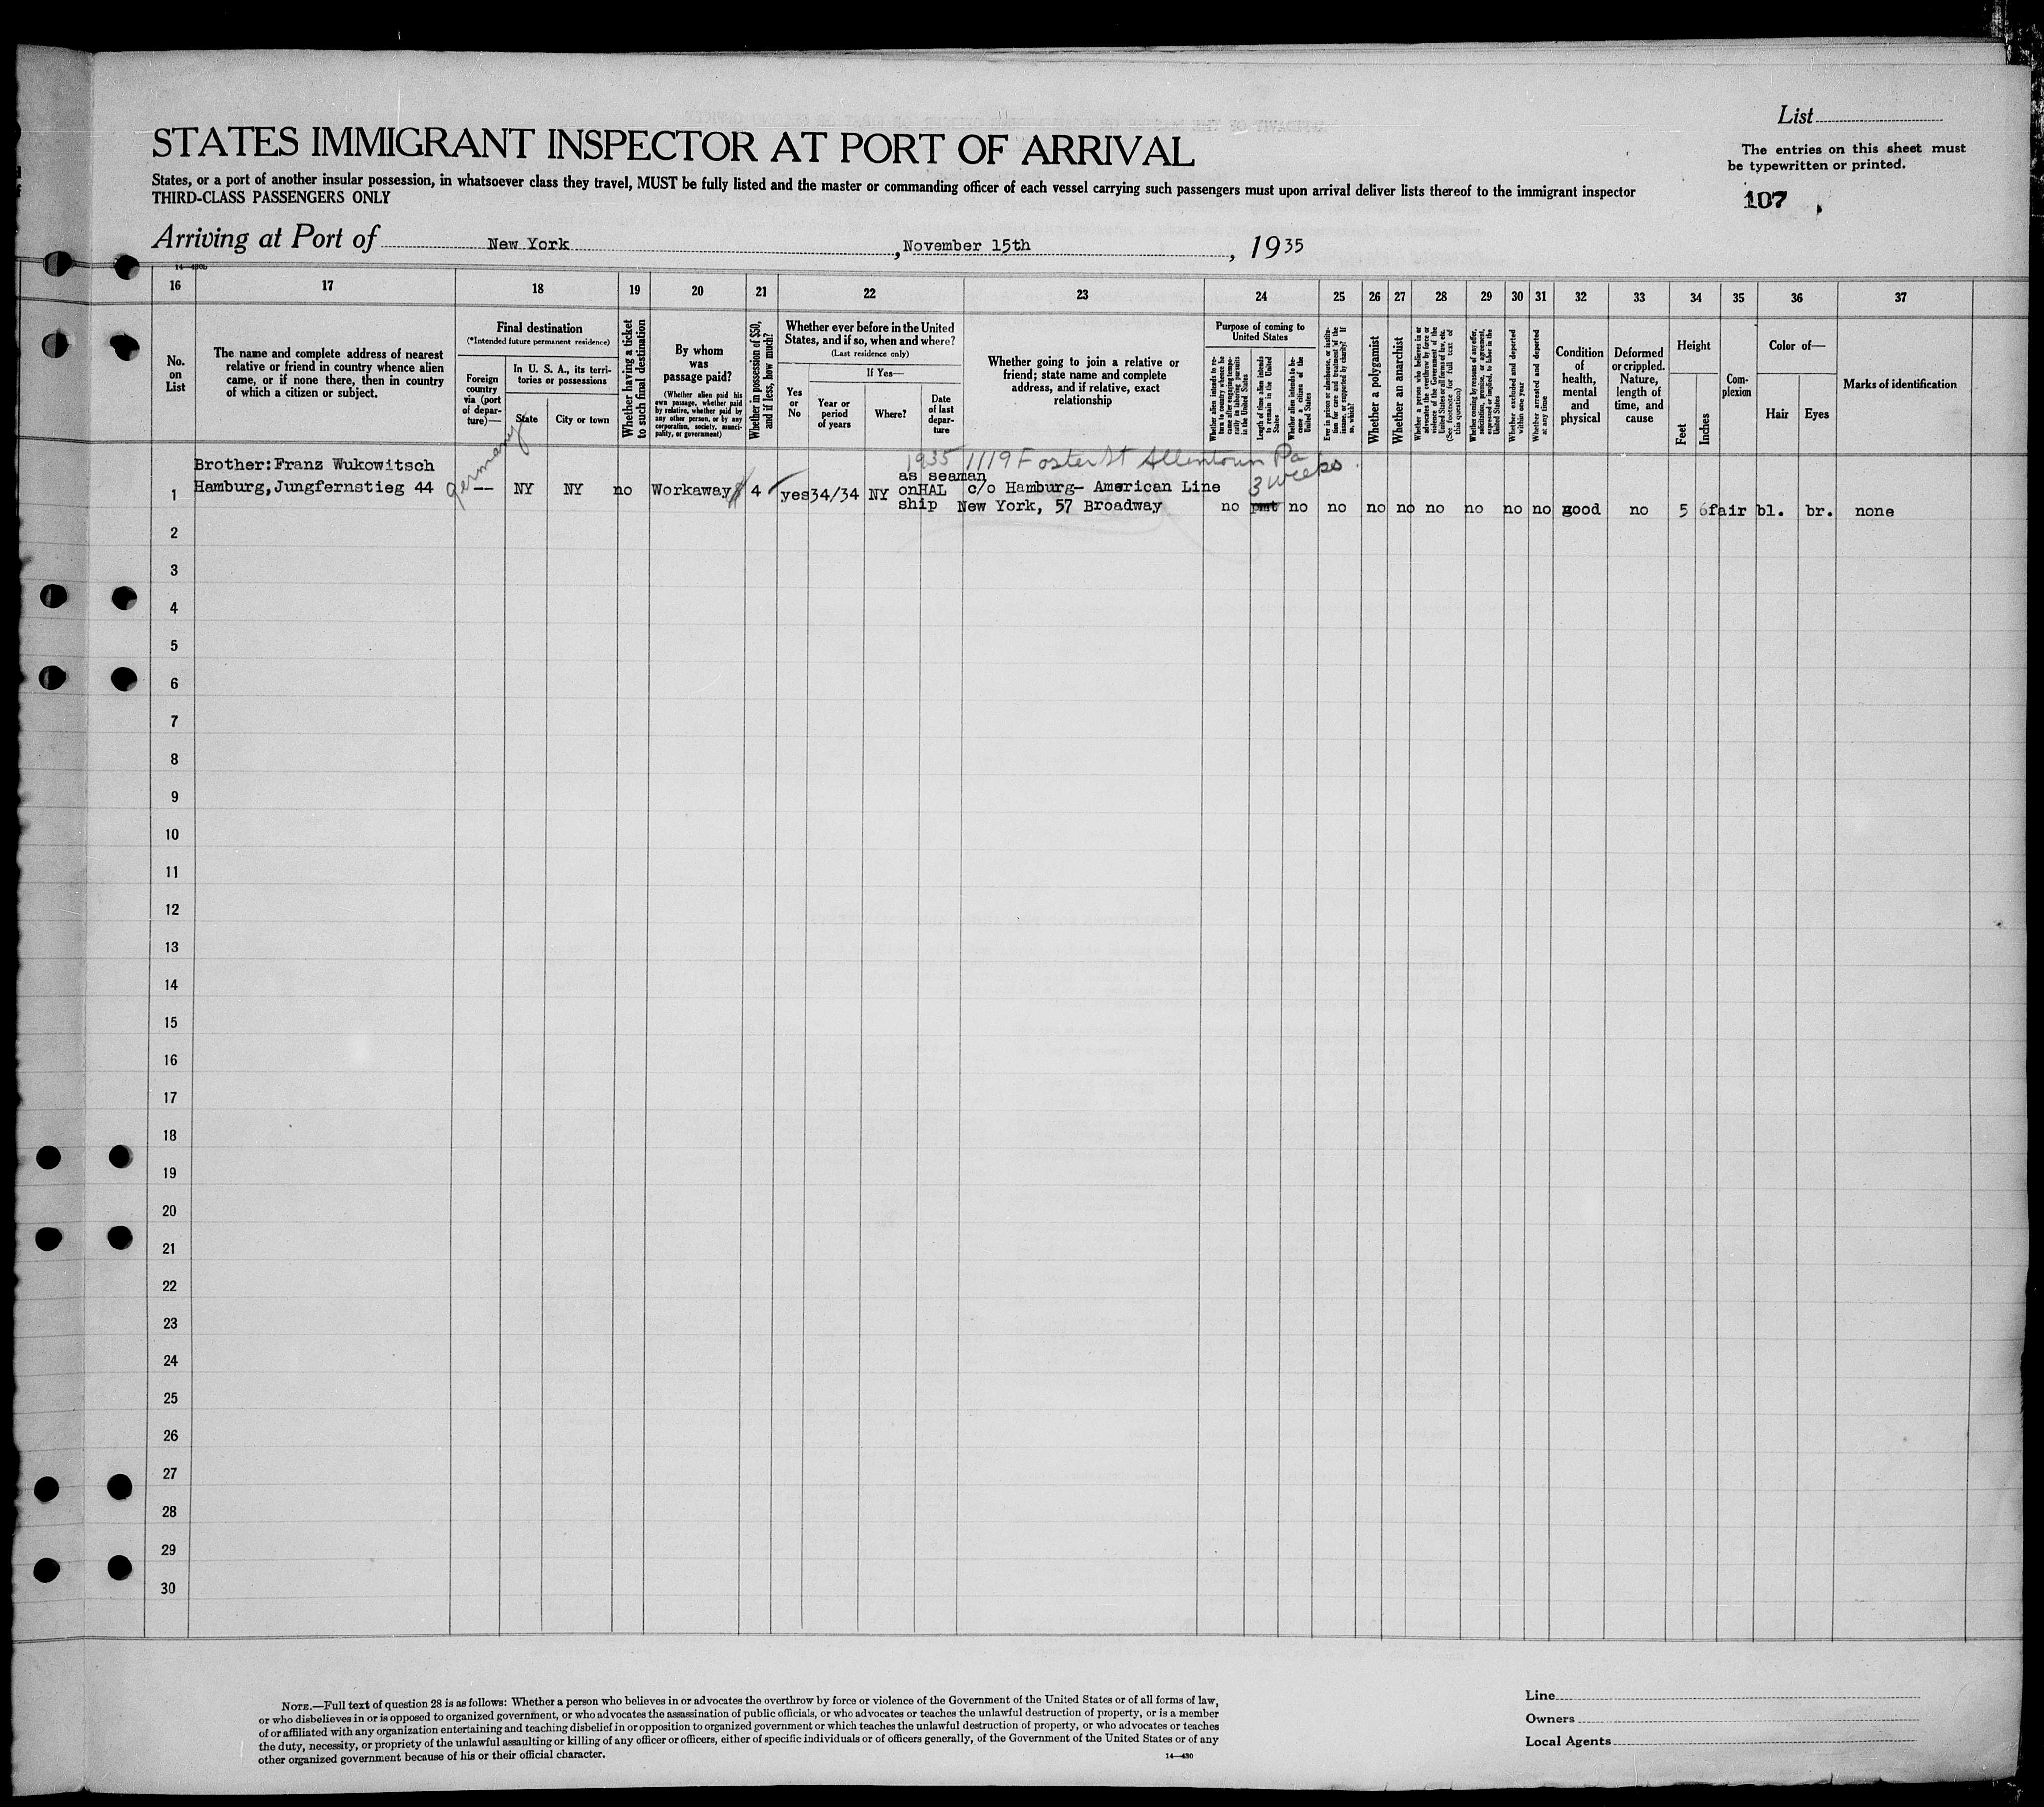 List
STATES IMMIGRANT INSPECTOR AT PORT OF ARRIVAL
The entries on this sheet must
be typewritten or printed.
States, or a port of another insular possession, in whatsoever class they travel, MUST be fully listed and the master or commanding officer of each vessel carrying such passengers must upon arrival deliver lists thereof to the immigrant inspector
THIRD-CLASS PASSENGERS ONLY
107
Arriving at Port of New York, November 15th, 1935
16 17 18 19 20 21 22 23 24 25 26 27 28 29 30 31 32 33 34 35 36 37
No.
on
List
The name and complete address of nearest
relative or friend in country whence alien
came, or if none there, then in country
of which a citizen or subject.
Final destination
(*Intended future permanent residence)
Foreign
country
via (port
of depar-
ture)—
In U. S. A., its terri-
tories or possessions
State
City or town
Whether having a ticket
to such final destination
By whom
was
passage paid?
(Whether alien paid his
own passage, whether paid
by relative, whether paid by
any other person, or by any
corporation, society, munici-
pality, or government)
Whether in possession of $50,
and if less, how much?
Whether ever before in the United
States, and if so, when and where?
(Last residence only)
Yes
or
No
If Yes—
Year or
period
of years
Where?
Date
of last
depar-
ture
Whether going to join a relative or
friend; state name and complete
address, and if relative, exact
relationship
Purpose of coming to
United States
Whether alien intends to re-
turn to country whence he
came after engaging tempo-
rarily in laboring pursuits
in the United States
Length of time alien intends
to remain in the United
States
Whether alien intends to be-
come a citizen of the
United States
Ever in prison or almshouse, or institu-
tion for care and treatment of the
insane, or supported by charity? If
so, which?
Whether a polygamist
Whether an anarchist
Whether a person who believes in or
advocates the overthrow by force or
violence of the Government of the
United States or all forms of law, etc.
(See footnote for full text of
this question)
Whether coming by reason of any offer,
solicitation, promise, or agreement,
expressed or implied, to labor in the
United States
Whether excluded and deported
within one year
Whether arrested and deported
at any time
Condition
of
health,
mental
and
physical
Deformed
or crippled.
Nature,
length of
time, and
cause
Height
Feet
Inches
Com-
plexion
Color of—
Hair
Eyes
Marks of identification
Brother: Franz Wukowitsch
Germany
1935 1119 Foster St Allentown Pa
3 weeks
1 Hamburg, Jungfernstieg 44 -- NY NY no Workaway 4 yes 34/34 NY
as seaman
on HAL
ship
c/o Hamburg- American Line
New York, 57 Broadway
no pmt no no no no no no no no good no 5 6 fair bl. br. none
2
3
4
5
6
7
8
9
10
11
12
13
14
15
16
17
18
19
20
21
22
23
24
25
26
27
28
29
30
NOTE.—Full text of question 28 is as follows: Whether a person who believes in or advocates the overthrow by force or violence of the Government of the United States or of all forms of law,
or who disbelieves in or is opposed to organized government, or who advocates the assassination of public officials, or who advocates or teaches the unlawful destruction of property, or is a member
of or affiliated with any organization entertaining and teaching disbelief in or opposition to organized government or which teaches the unlawful destruction of property, or who advocates or teaches
the duty, necessity, or propriety of the unlawful assaulting or killing of any officer or officers, either of specific individuals or of officers generally, of the Government of the United States or of any
other organized government because of his or their official character.
14—430
Line
Owners
Local Agents